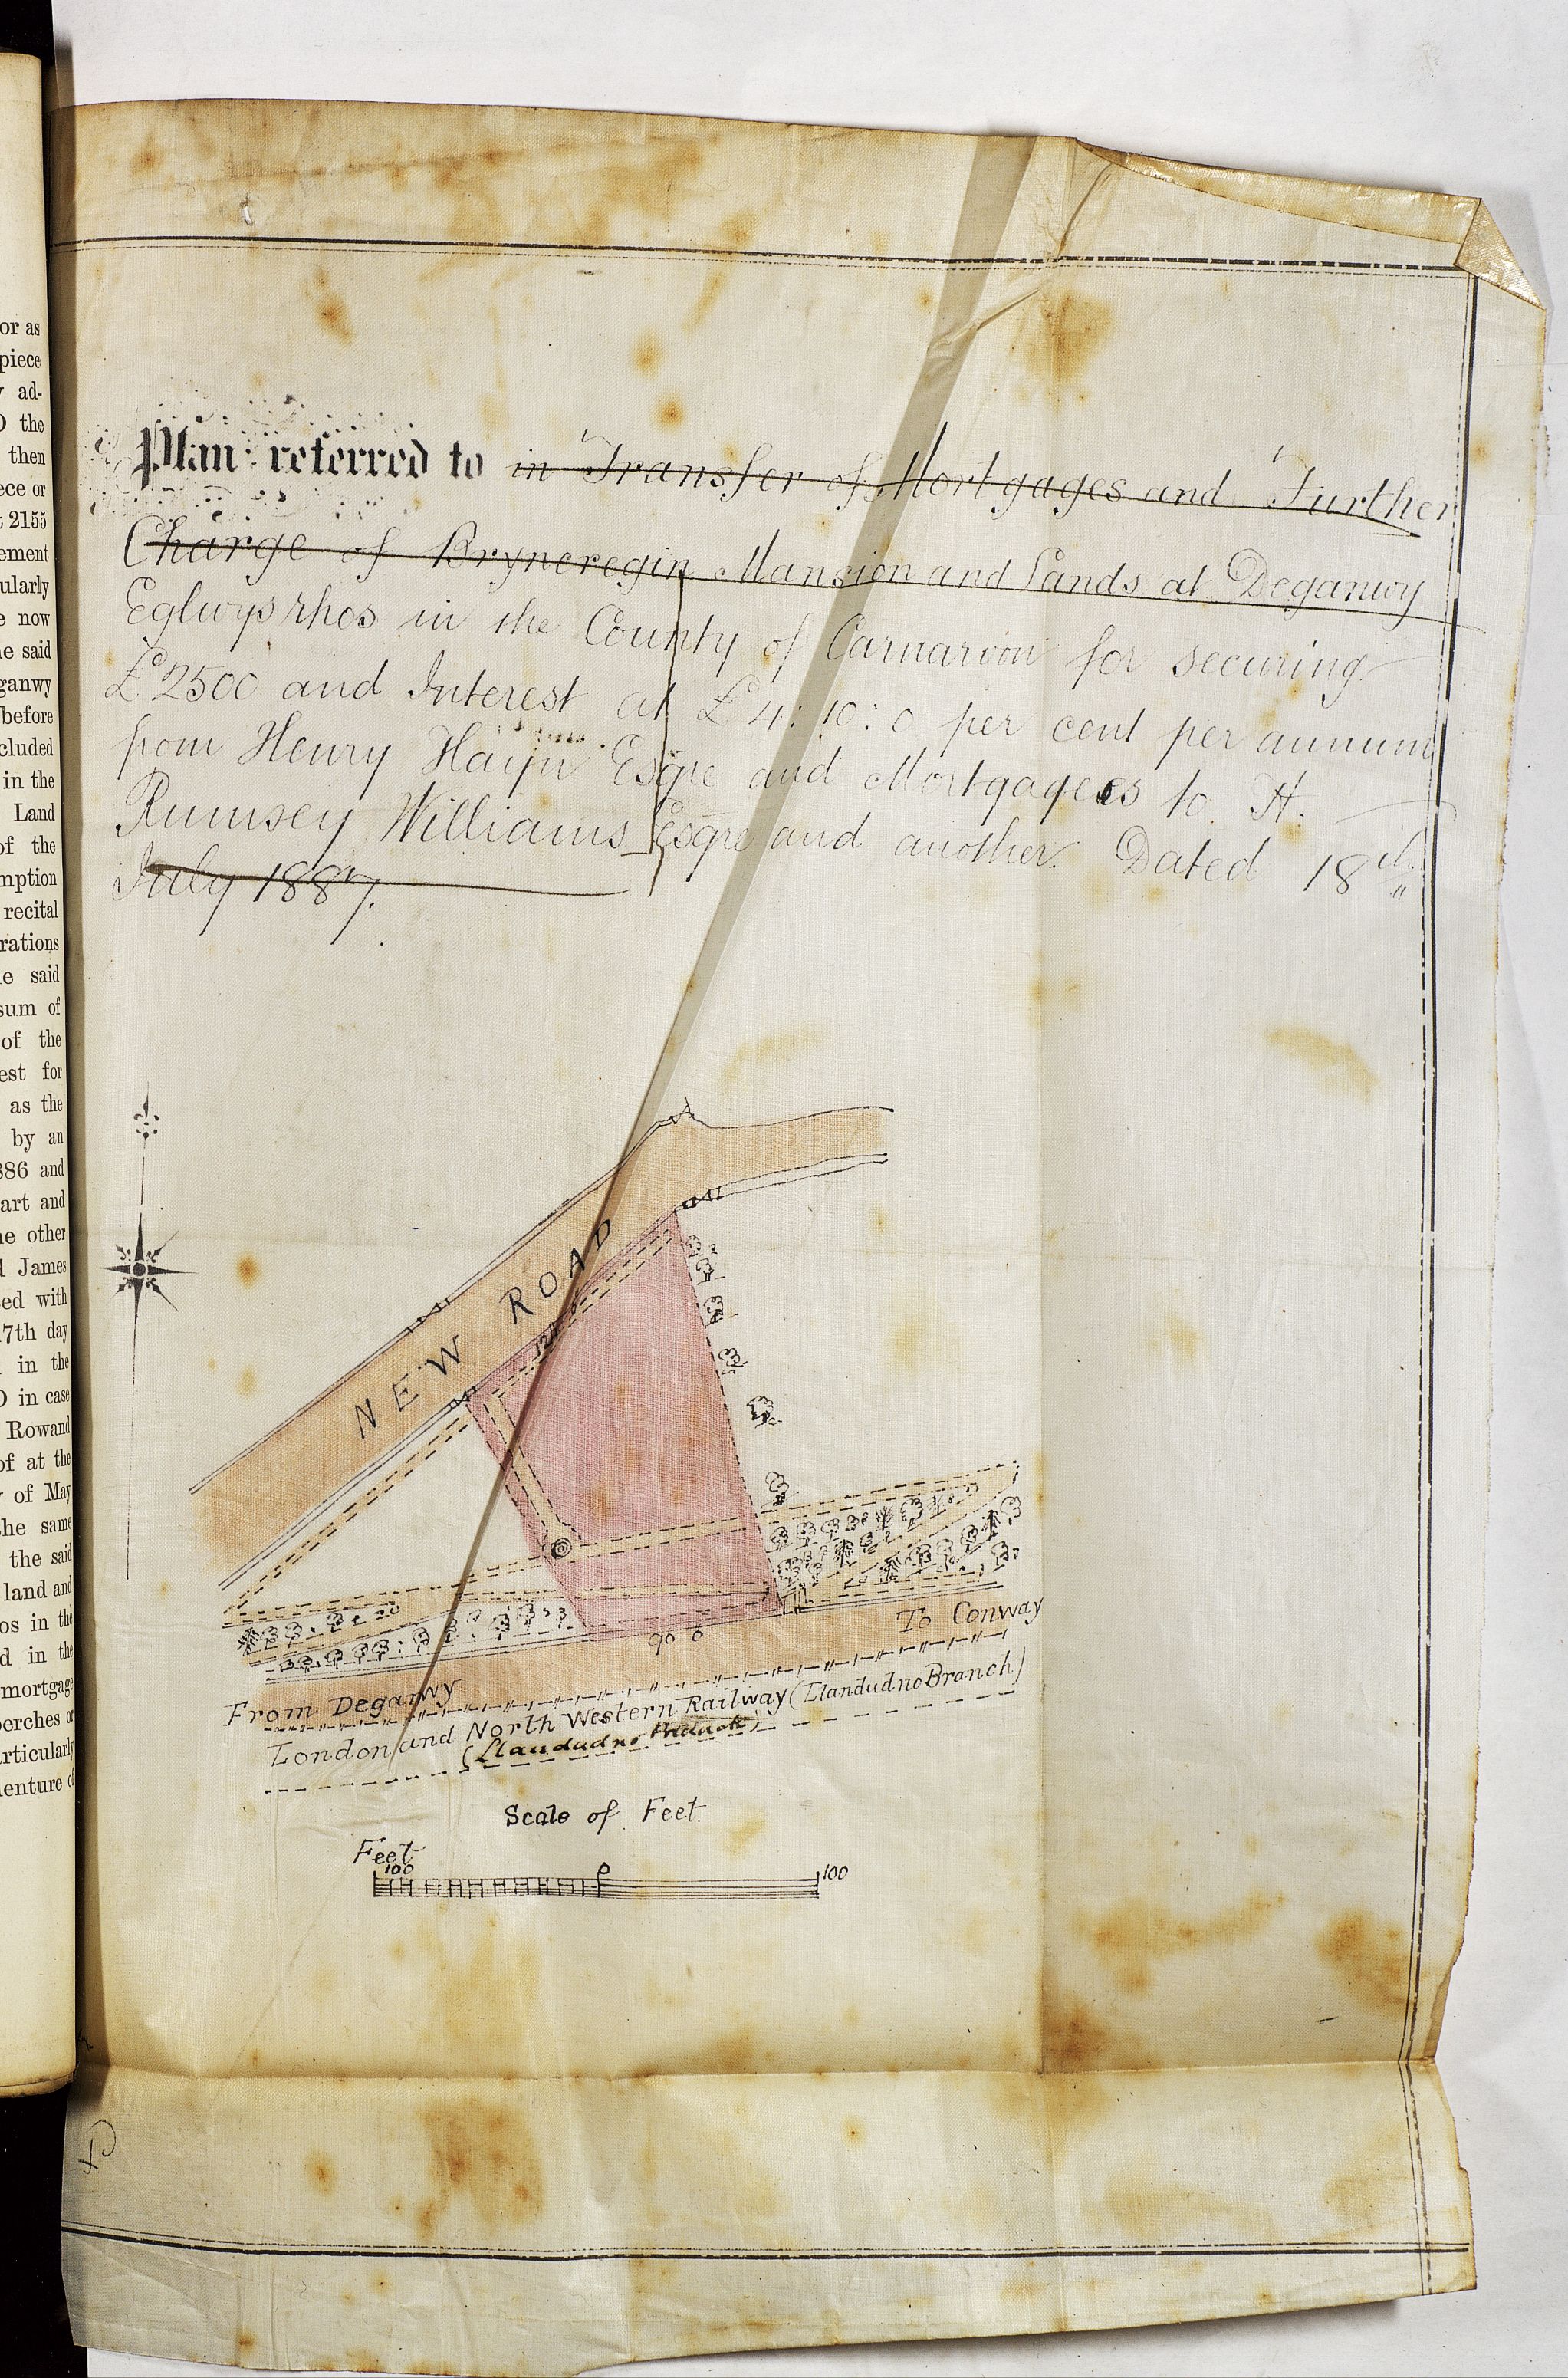 or as
piece
ad-
the
then
ece or
2155
ement
ularly
e now
e said
ganwy
before
cluded
in the
Land
of the
mption
recital
rations
e said
sum of
of the
est for
as the
by an
886 and
art and
he other
d James
ed with
17th day
in the
in case
Rowand
of at the
of May
the same
the said
land and
os in the
d in the
mortgage
perches or
articularly
denture of
Plan referred to in Transfer of Mortgages and Further
Charge of Bryncregin Mansion and Lands at Deganwy
Eglwysrhos in the County of Carnarvon for securing
£2500 and Interest at £4:10:0 per cent per annum
from Henry Hayn Esqre and Mortgagees to H.
Rumsey Williams Esqre and another. Dated 18th
July 1887.
NEW ROAD
121
96 6
To Conway
From Deganwy
London and North Western Railway (Llandudno Branch)
(Llandudno
Scale of Feet.
Feet
100 0 100